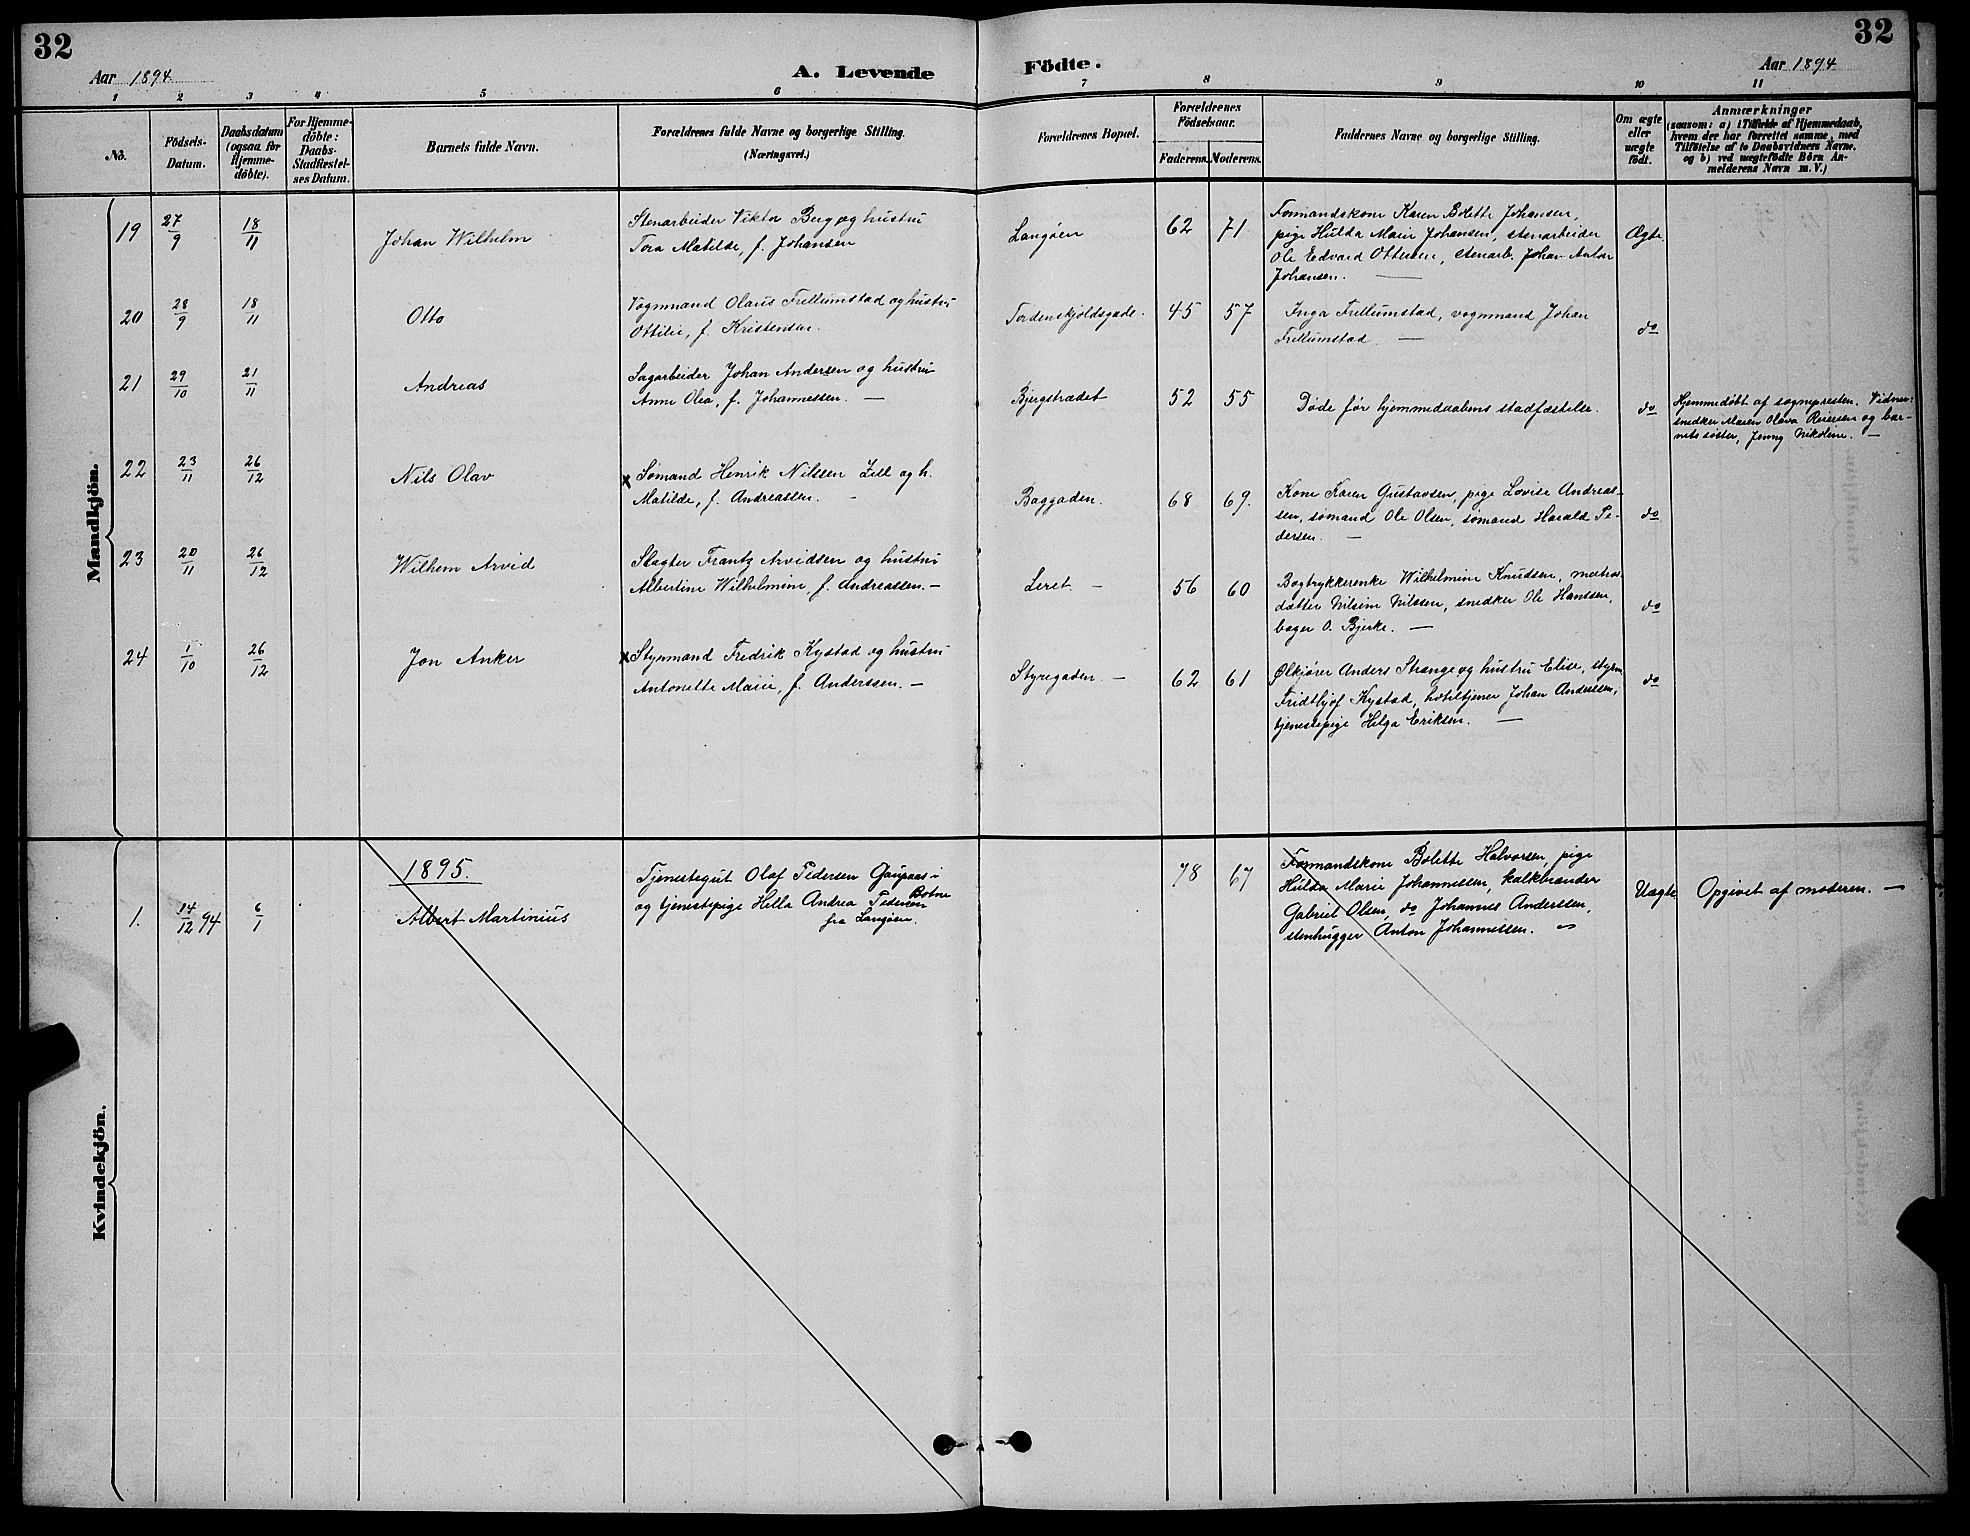 32
32
Aar 1894
A. Levende
Födte.
Aar 1894
1 2 3 4 5 6 7 8 9 10 11
No.
Födsels-
Datum.
Daabsdatum
(ogsaa for
Hjemme-
döbte).
For Hjemme-
döbte:
Daabs-
Stadfæstel-
ses Datum.
Barnets fulde Navn.
Forældrenes fulde Navne og borgerlige Stilling.
(Næringsvei.)
Forældrenes Bopæl.
Forældrenes
Födselsaar.
Faderens.
Moderens.
Faddernes Navne og borgerlige Stilling.
Om ægte
eller
uægte
födt.
Anmærkninger
(saasom: a) i Tilfælde af Hjemmedaab,
hvem der har forrettet samme, med
Tilföielse af to Daabsvidners Navne,
og b) ved uægtefödte Börn An-
melderens Navn m. V.)
Mandkjön.
19 27/9 18/11 Johan Wilhelm
Stenarbeider Viktor Berg og hustru
Tora Matilde, f. Johansen
Langøen 62 71
Formandskone Karen Bolette Johansen,
pige Hulda Marie Johansen, stenarbeider
Ole Edvard Ottersen, stenarb. Johan Anton
Johansen. —
Ægte
20 28/9 18/11 Otto
Vognmand Olaus Frellumstad og hustru
Ottilie, f. Kristensen.
Tordenskjoldsgade. 45 57
Inga Frellumstad, vognmand Johan
Frellumstad. —
do
21 29/10 21/11 Andreas
Sagarbeider Johan Andersen og hustru
Anne Olea, f. Johannessen. —
Bjergstrædet 52 55
Døde før hjemmedaabens stadfæstelse.
do
Hjemmedøbt af sognepresten. Vidner:
snedker Maren Olava Reiersen og bar-
nets søster, Jenny Nikoline. —
22 23/11 26/12 Nils Olav
x Sømand Henrik Nilssen Zill og h.
Matilde, f. Andreassen. -
Baggaden. 68 69.
Kone Karen Gustavsen, pige Lovise Andreas-
sen, sømand Ole Olsen, sømand Harald Pe-
dersen. —
do
23 20/11 26/12 Wilhem Arvid
Slagter Frantz Arvidsen og hustru
Albertine Wilhelmine, f. Andreassen. —
Leret. — 56 60
Bogtrykkerenke Wilhelmine Knudsen,
datter Nilsine Nilssen, snedker Ole Hanssen,
bager O. Bjerke. —
do
24 1/10 26/12 Jon Anker
x Styrmand Fredrik Kystad og hustru
Antonette Marie, f. Anderssen. —
Styregaden. — 62 61
Ølkjører Anders Strange og hustru Elise, styrm.
Fridthjof Kystad, hoteltjener Johan Andersen,
tjenestepige Helga Eriksen. —
do
Kvindekjön.
1895.
1. 14/12 94 6/1 Albert Martinius
Tjenestegut Olaf Pedersen Gaupaas i
Botne
og tjenestepige Hella Andrea Pedersen
fra Langøen.
78 67
Formandskone Bolette Halvorsen, pige
Hulda Marie Johannessen, kalkbrænder
Gabriel Olsen, do Johannes Anderssen,
stenhugger Anton Johannessen. —
Uægte
Opgivet af moderen. —